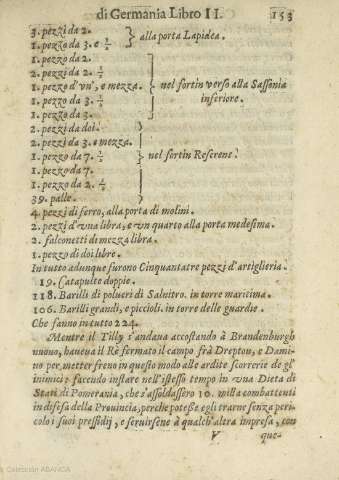 di Germania Libro II. 153
3. pezzi da 2.
1. pezzo da 3. e 1/2 } alla porta Lapidea.
1. pezzo da 2.
2. pezzi da 2. 1/2
1. pezzo d'vn', e mezza. } nel fortin verso alla Sassonia
1. pezzo da 3. inferiore.
1. pezzo da 5.
2. pezzi da doi.
2. pezzi da 3. e mezza.
1. pezzo da 7. 1/2 } nel fortin Referene.
1. pezzo da 7.
1. pezzo da 2.
39. palle.
4. pezzi di ferro, alla porta di molini.
2. pezzi d'vna libra, e vn quarto alla porta medesima.
2. falconetti di mezza libra.
1. pezzo di doi libre.
In tutto adunque furono Cinquantatre pezzi d'artiglieria.
19. Catapulte doppie.
118. Barilli di polueri di Salnitro. in torre maritima.
106. Barilli grandi, e piccioli. in torre delle guardie.
Che fanno in tutto 224.
Mentre il Tilly s'andaua accostando à Brandenburgh
nuouo, haueua il Rè fermato il campo frà Drepton, e Dami-
no per, metter freno in questo modo alle ardite scorrerie de gl'
inimici: facendo instare nell'istesso tempo in vna Dieta di
Stati di Pomerania, che s'assoldassero 10. milla combattenti
in difesa della Prouincia, perche potesse egli trarne senza peri-
colo i suoi pressidij, e seruirsene à qualch'altra impresa, con
V que-
Colección ABANCA